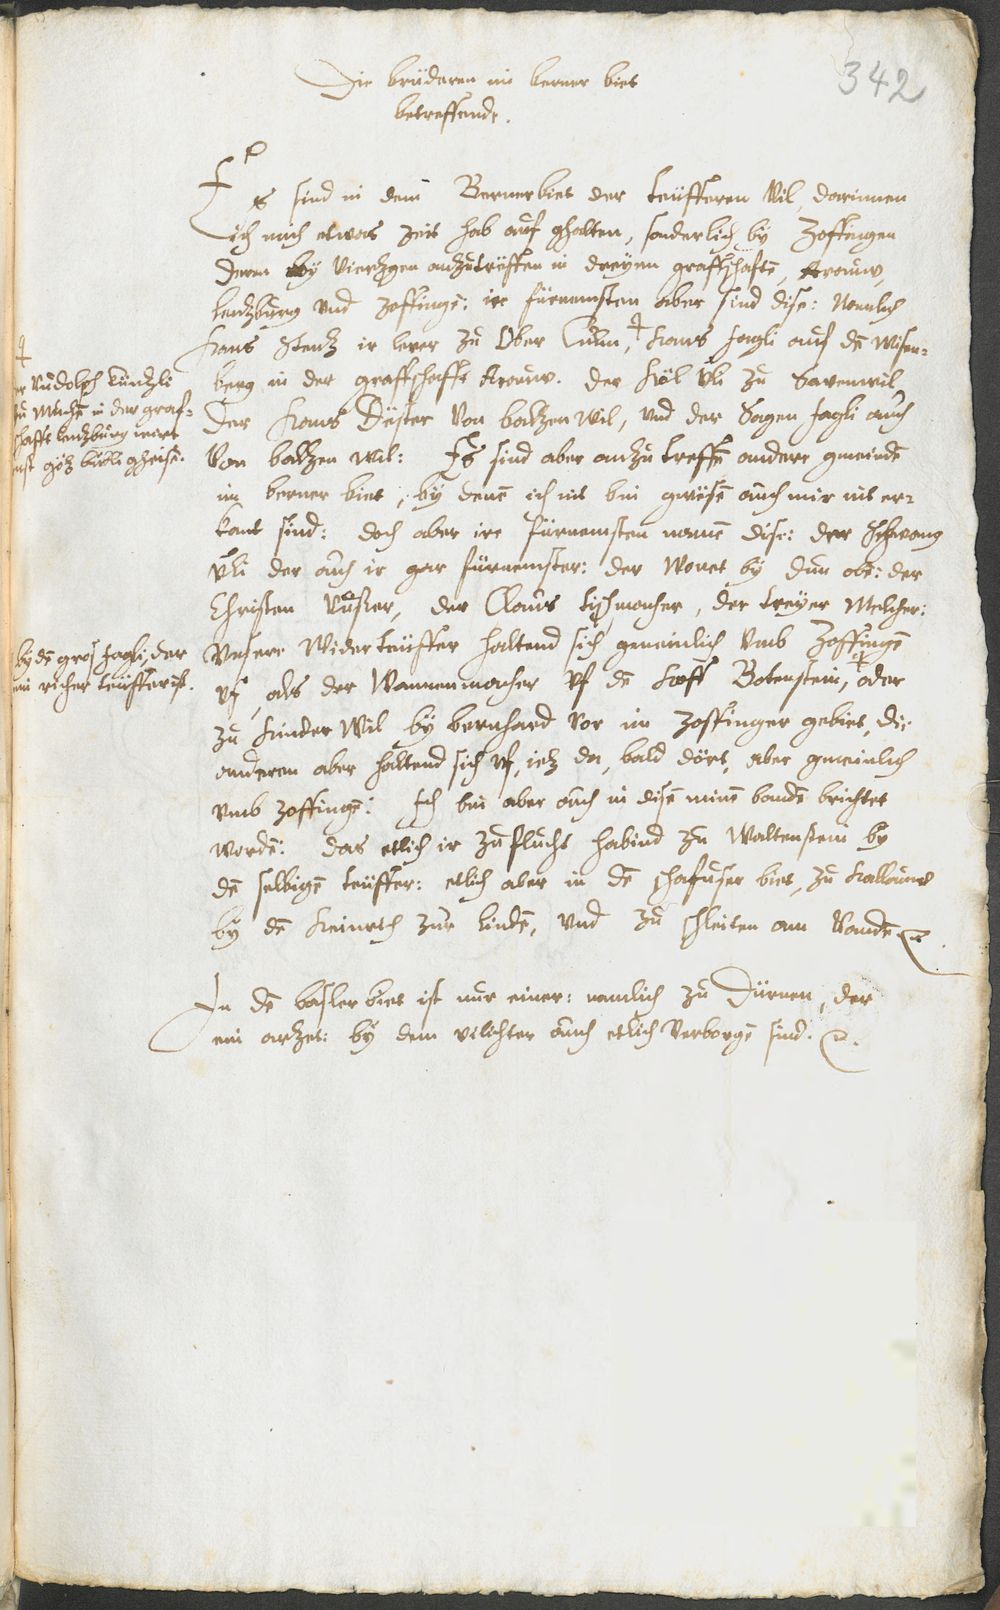 342
Die brüderen im berner biet
betreffende.
Es sind in dem Bernerbiet der teüfferen vil, darinnen
ich mich etwas zeit hab auf ghalten, sonderlich by Zoffingen
deren by vierzgen anzůträffen in dreyen graffschafte, Arouw,
lentzburg vnd Zoffinge: ire fürnemsten aber sind dise: Nemlich
Hans Stentz ir lerer zů Ober Culm, ☩ Hans Jagli auf de Wisen-
berg in der graffschafft Arouw. der Köl Uli zů Savenwil,
Der Hans Dester von balzenwil, vnd der Sagen Jagli auch
von balzen wil: Es sind aber anzůtreffe andere gmeinde
im berner biet, by dene ich nit bin gwäse auch mir nit er-
kant sind: doch aber ire fürnemsten name dise: der Schwang
Uli der auch ir gar fürnemster: der wonet by dun obe: der
Christen , der Claus tischmacher, der treyer Melcher:
Unsere widerteüffer haltend sich gemeinlich vmb Zoffinge
vf, als der Wannenmacher vf de Hoff Botenstein, ☩ oder
zů hinder Wil by bernhard vor im Zoffinger gebiet, die
anderen aber haltend sich vf, ietz da, bald dört, aber gmeinlich
vmb zoffinge: Ich bin aber auch in dise mine bande brichtet
worde: das etlich ir zůflucht habind zu Waltenstein by
de selbige teüffer: etlich aber in de schafuser biet, zů Hallauw
by de Heinrich zur linde, vnd zů schleiten am Rande
In de basler biet ist nur einer: namlich zů Dürnen, der
ein artzet: by dem vilichter auch etlich verborge sind.
☩
er Rudolph küntzli
zů Můhe in der graf-
schafft lentzburg wirt
sust götz gheise.
by de gros Jagli, der
ein richer teüffer ist.